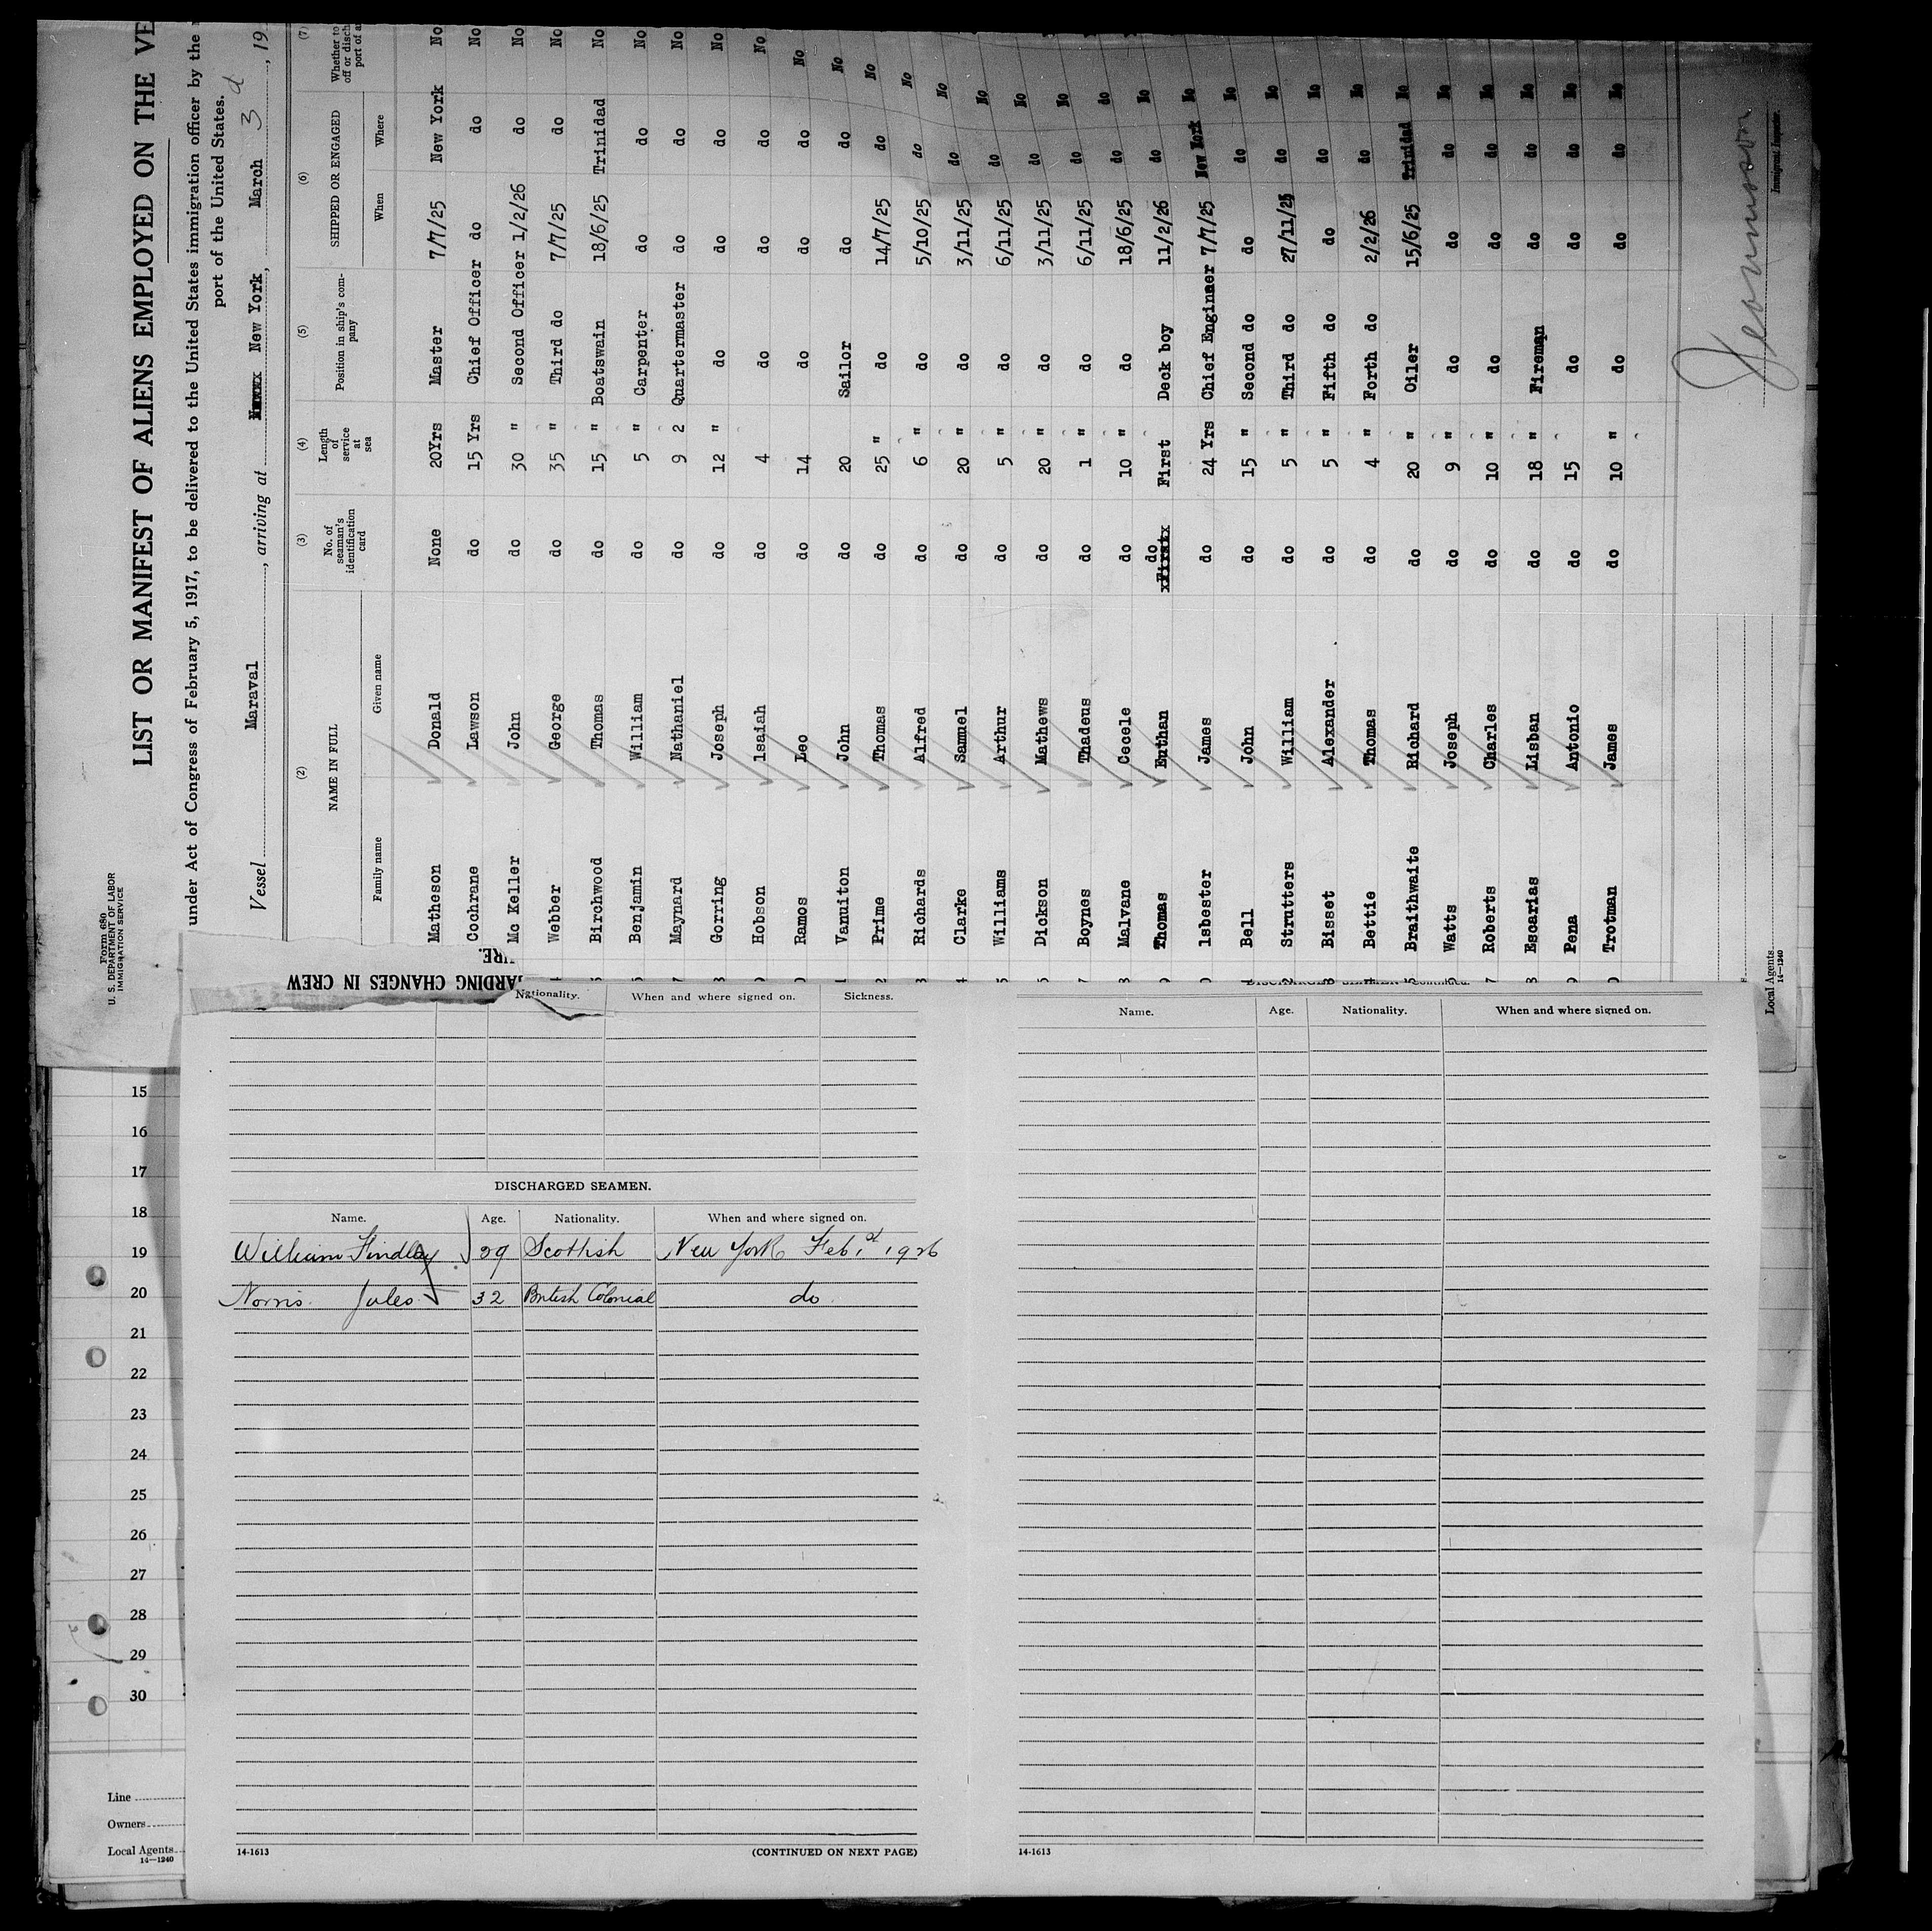 Form 680
U. S. DEPARTMENT OF LABOR
IMMIGRATION SERVICE
LIST OR MANIFEST OF ALIENS EMPLOYED ON THE VE
under Act of Congress of February 5, 1917, to be delivered to the United States immigration officer by the
port of the United States.
Vessel Maraval, arriving at New York, March 3d, 19
(2) (3) (4) (5) (6) (7)
NAME IN FULL No. of seaman's identification card Length of service at sea Position in ship's company SHIPPED OR ENGAGED Whether to
off or disch
port of a
Family name Given name When Where
Matheson Donald None 20Yrs Master 7/7/25 New York No
Cochrane Lawson do 15 Yrs Chief Officer do do No
Mc Keller John do 30 " Second Officer 1/2/26 do No
Webber George do 35 " Third do 7/7/25 do No
Birchwood Thomas do 15 " Boatswain 18/6/25 Trinidad No
Benjamin William do 5 " Carpenter do do No
Maynard Nathaniel do 9 2 Quartermaster do do No
Gorring Joseph do 12 " do do do No
Hobson 1saiah do 4 do do do No
Ramos Leo do 14 do do do No
Vanuiton John do 20 Sailor do do No
Prime Thomas do 25 " do 14/7/25 do No
Richards Alfred do 6 " do 5/10/25 do No
Clarke Samuel do 20 " do 3/11/25 do No
Williams Arthur do 5 " do 6/11/25 do No
Dickson Mathews do 20 " do 3/11/25 do No
Boynes Thadeus do 1 " do 6/11/25 do No
Malvane Cecele do 10 " do 18/6/25 do do
Thomas Euthan do First Deck boy 11/2/26 do No
1sbester James do 24 Yrs Chief Enginner 7/7/25 New York No
Bell John do 15 " Second do do do No
Strutters William do 5 " Third do 27/11/25 do No
Bisset Alexander do 5 " Fifth do do do No
Bettie Thomas do 4 " Forth do 2/2/26 do No
Braithwaite Richard do 20 " Oiler 15/6/25 Trinidad No
Watts Joseph do 9 " do do do No
Roberts Charles do 10 " do do do No
Escarias Lisban do 18 " Fireman do do No
Pena Antonio do 15 do do do No
Trotman James do 10 " do do do No
Immigrant Inspector.
Local Agents
14—1240
URE.
ARDING CHANGES IN CREW
Nationality. When and where signed on. Sickness.
DISCHARGED SEAMEN.
Name. Age. Nationality. When and where signed on.
William Findlay 29 Scottish New York Feb 1st 1926
Norris Jules 32 British Colonial do
14-1613 (CONTINUED ON NEXT PAGE)
Name. Age. Nationality. When and where signed on.
14-1613
15
16
17
18
19
20
21
22
23
24
25
26
27
28
29
30
Line
Owners
Local Agents
14—1240